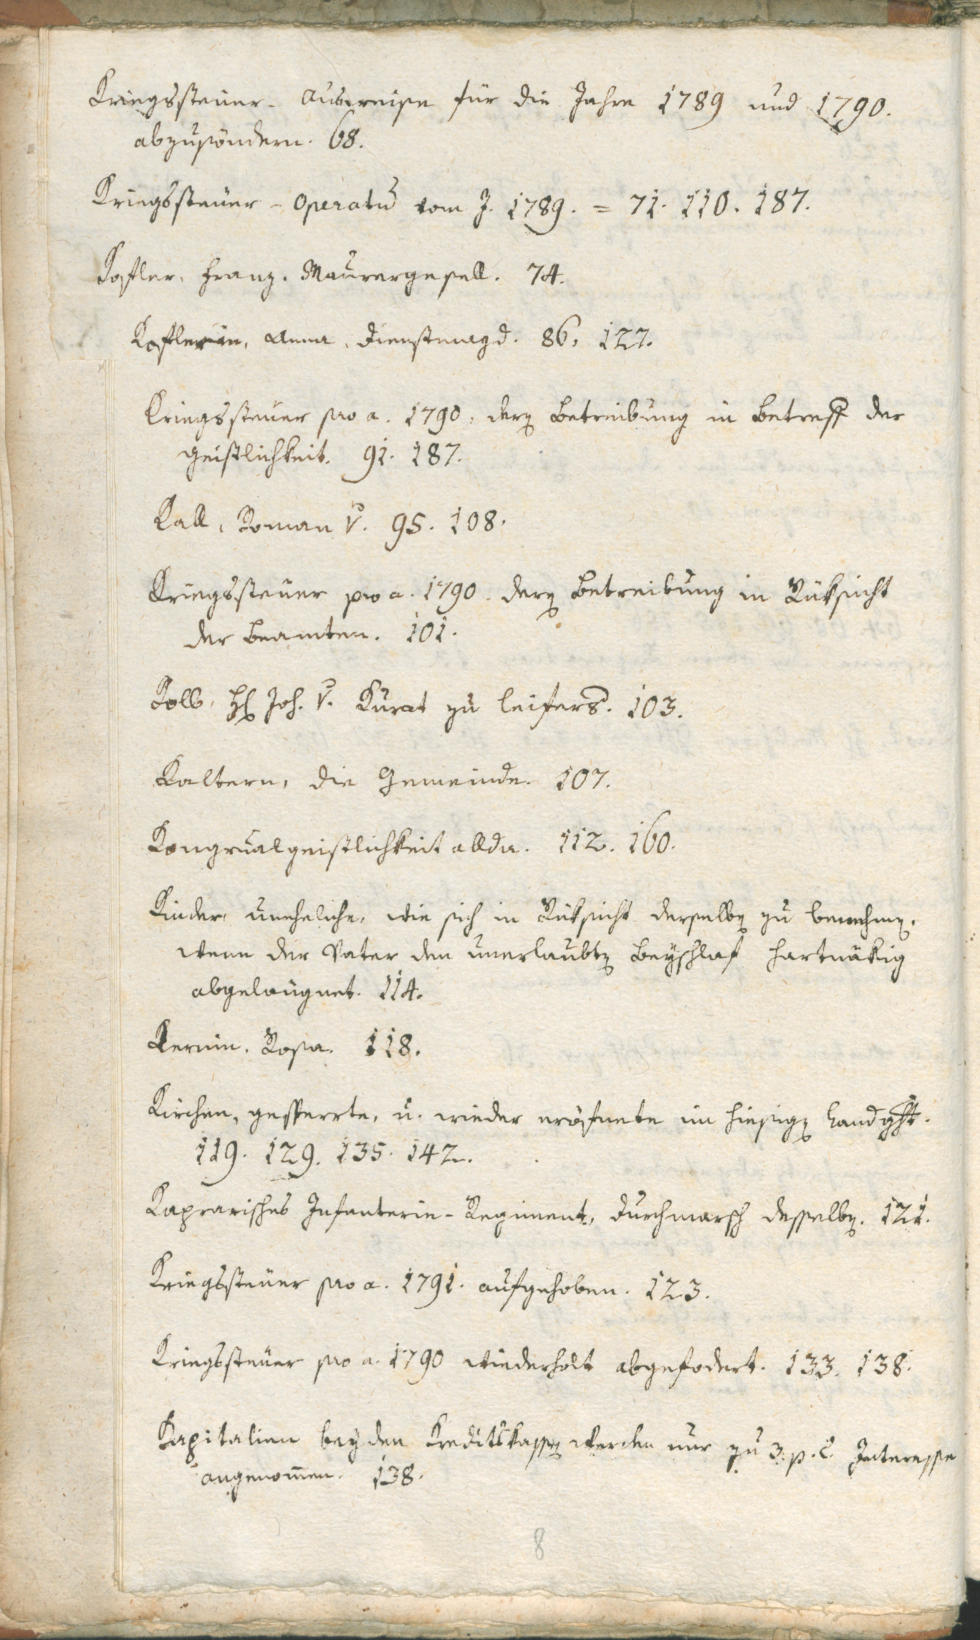 Kriegssteuer- Ausweise für die Jahre 1789 und 1790.
abzusöndern. 68.
Kriegssteuer-Operatũ vom J. 1789. = 71. 110. 187.
Kofler, Franz, Maurergesell. 74.
Koflerin, Anna, Dienstmagd. 86. 127.
Kriegssteuer pro a. 1790, dern Betreibung in Betreff der
Geistlichkeit. 91. 187.
Kall, Roman v. 95. 108.
Kriegssteuer pro a. 1790. dern Betreibung in Rüksicht
der Beamten. 101.
Kolb, H. Joh. v. Kurat zu Leifers. 103.
Kaltern, die Gemeinde. 107.
Kongrualgeistlichkeit allda. 112. 160.
Kinder, uneheliche, wie sich in Rüksicht derselbn zu benehmn,
wenn der Vater den unerlaubtn Beyschlaf hartnäkig
abgelaügnet. 114.
Kernin, Rosa. 118.
Kirchen, gesperrte, u. wieder eröfnete im hiesign Landght.
119. 129. 135. 142.
Kaprarisches Infanterie-Regiment, Durchmarsch desselbn. 121.
Kriegssteuer pro a. 1791. aufgehoben. 123.
Kriegssteuer pro a. 1790 wiederholt abgefodert. 133. 138.
Kapitalien bey den Kreditskassn werden nur zu 3. p. C. Interesse
angenom̃en. 138.
8